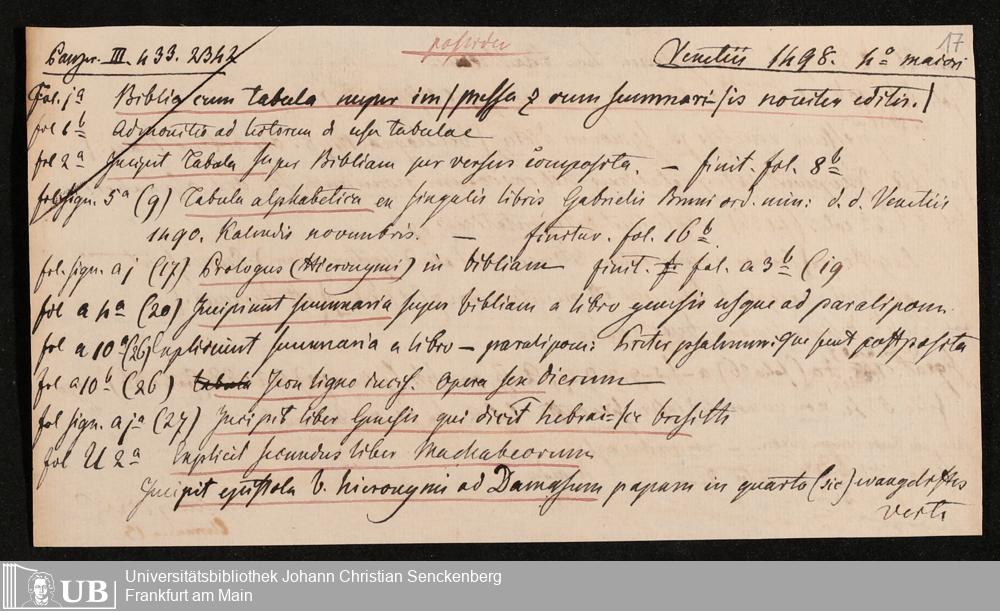 Panzer. III. 433. 2342
possidet
Venetiis 1498. 4° maiori
17
Fol. ja Biblia cum tabula nuper im/pressa z cum summari=/is noviter editis./
fol 1b Admonitio ad lectorem d usu tabulae
fol 2a Incipit Tabula super Bibliam per versus composita. — finit. fol. 8b
fol sign. 5a (9) Tabula alphabetica ex singulis libris Gabrielis Bruni ord. min: d. d. Venetiis
1490. Kalendis novembris. — finitur. fol. 16b
fol. sign. a j (17) Prologus (Hieronymi) in bibliam finit. fol. a 3b (19
fol a 4a (20) Incipiunt summaria super bibliam a libro genesis usque ad paralipom.
fol a 10a (26) Expliciunt summaria a libro — paralipom: sunt posposita
fol a 10b (26) Icon ligno incis. Opera sex dierum
fol sign. a ja (27) Incipit liber Genesis qui dicit hebrai=/ce bresith
fol U 2a Explicit secundus liber Machabeorum
Incipit epistola b. hieronymi ad Damasum papam in quarto (sic) evangelistas
verte
Universitätsbibliothek Johann Christian Senckenberg
Frankfurt am Main
UB